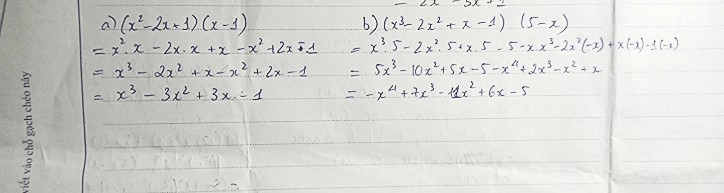 a) (x² - 2x + 1) (x - 1)
= x².x - 2x.x + x - x² + 2x - 1
= x³ - 2x² + x - x² + 2x - 1
= x³ - 3x² + 3x - 1
b) (x³ - 2x² + x - 1) (5 - x)
= x³.5 - 2x².5 + x.5 - 5 - x.x³ - 2x²(-x) + x(-x) - 1(-x)
= 5x³ - 10x² + 5x - 5 - x⁴ + 2x³ - x² + x
= -x⁴ + 7x³ - 11x² + 6x - 5
viết vào chỗ gạch chéo này